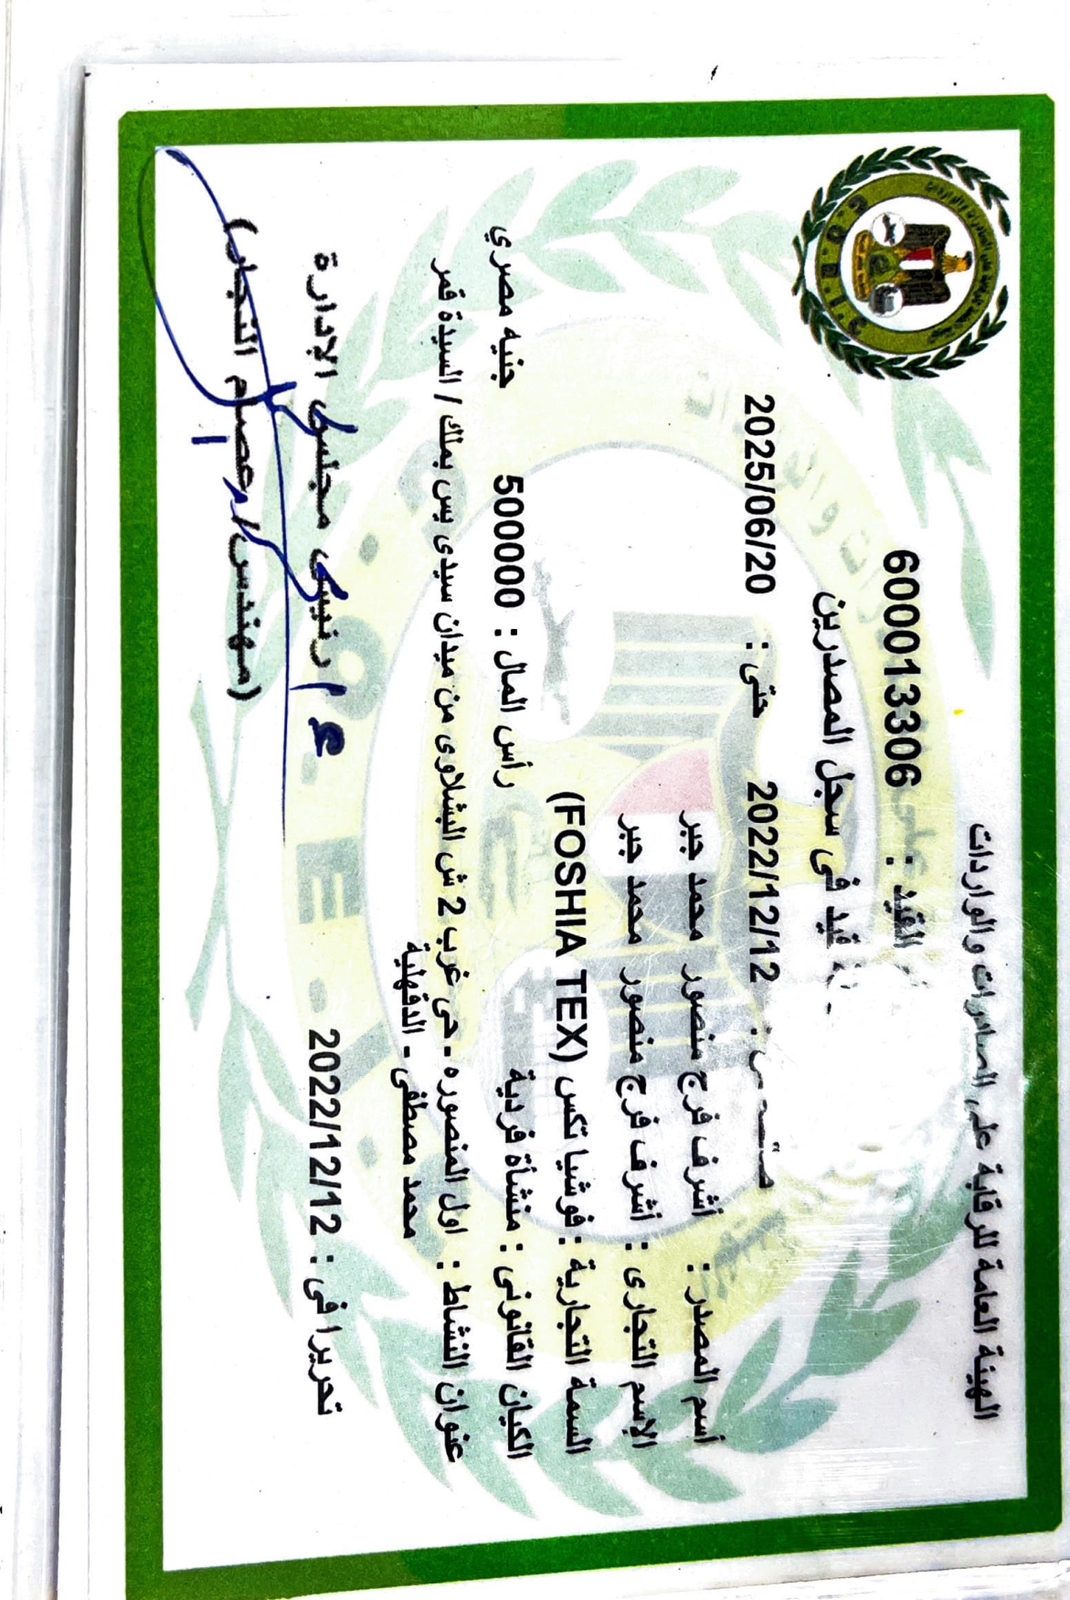 الهيئة العامة للرقابة على الصادرات والواردات
القيد : 600013306
قيد فى سجل المصدرين
2022/12/12 حتى : 2025/06/20
أسم المصدر : أشرف فرج منصور محمد جبر
الإسم التجارى : أشرف فرج منصور محمد جبر
السمة التجارية : فوشيا تكس (FOSHIA TEX)
الكيان القانونى : منشأة فردية رأس المال : 500000 جنيه مصري
عنوان النشاط : اول المنصوره - حى غرب 2 ش البشلاوى من ميدان سيدى يس بملك / السيدة قمر
محمد مصطفى - الدقهلية
تحريرا فى : 2022/12/12
ع / رئيس مجلس الإدارة
(مهندس/ عصام النجار)